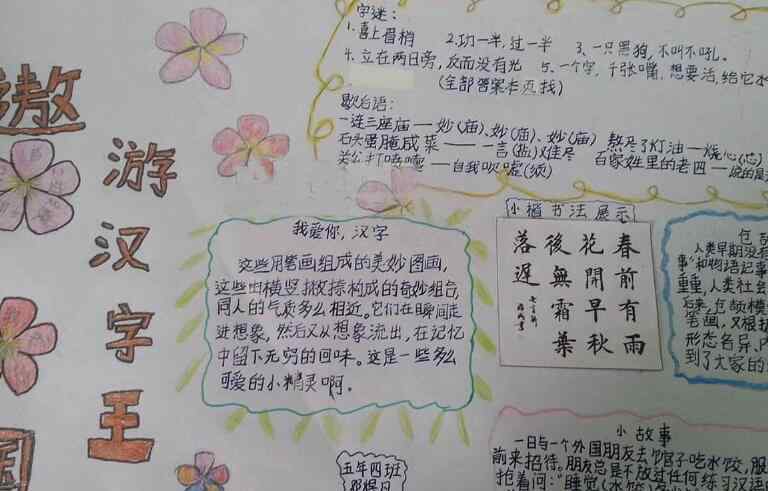 遨
游
汉
字
王
国
字迷：
1.喜上眉梢 2.功一半，过一半 3、一只黑狗，不叫不吼。
4.立在两日旁，反而没有光 5、一个字，千张嘴，想要活，给它水
（全部答案本页找）
歇后语：
一连三座庙——妙（庙）、妙（庙）、妙（庙） 熬尽了灯油—烧心（芯）
石头蛋腌咸菜——一言（盐）难尽 百家姓里的老四—
关公打喷嚏——自我吹嘘（须）
我爱你，汉字
这些用笔画组成的美妙图画，
这些由横竖撇捺构成的奇妙组合，
同人的气质多么相近。它们在瞬间走
进想象，然后又从想象流出，在记忆
中留下无穷的回味。这是一些多么
可爱的小精灵啊。
小楷书法展示
春前有雨
花開早秋
後無霜葉
落遲
人类早期没有
事"和"物语记事
重重，人类社会
后来，仓颉模
笔画，又根据
形态各异、内
到了大家的
五年四班
小故事
一日与一个外国朋友去饺子馆吃水饺，服
前来招待。朋友总是不放过任何练习汉语
抢着问："睡觉（水饺）